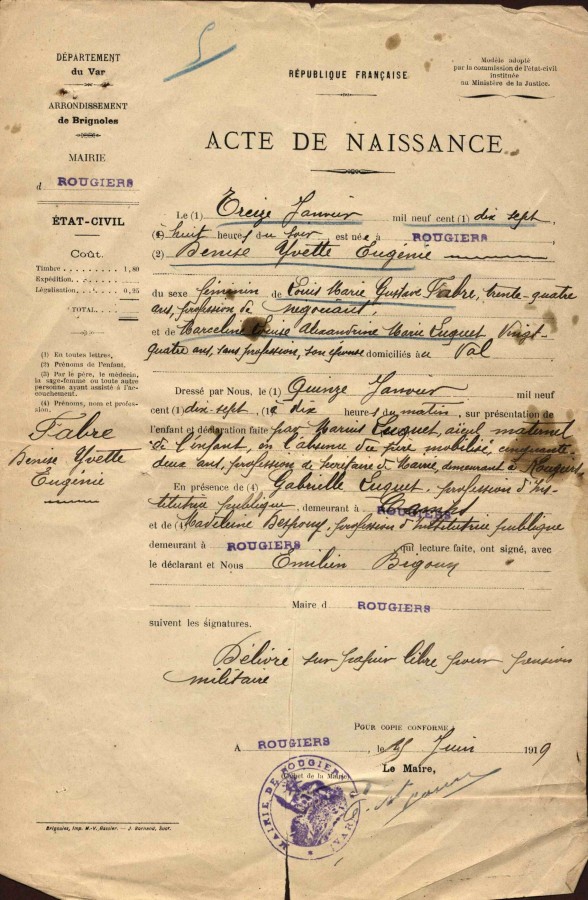 DÉPARTEMENT
du Var
ARRONDISSEMENT
de Brignoles
MAIRIE
d ROUGIERS
ÉTAT-CIVIL
Coût.
Timbre 1,80
Expédition
Légalisation 0,25
TOTAL
(1) En toutes lettres.
(2) Prénoms de l'enfant.
(3) Par le père, le médecin,
la sage-femme ou toute autre
personne ayant assisté à l'ac-
couchement.
(4) Prénoms, nom et profes-
sion.
Fabre
Denise Yvette
Eugénie
RÉPUBLIQUE FRANÇAISE
Modèle adopté
par la commission de l'état-civil
instituée
au Ministère de la Justice.
ACTE DE NAISSANCE
Le (1) Treize Janvier mil neuf cent (1) dix sept,
(1) à huit heures du soir est née à ROUGIERS
(2) Denise Yvette Eugénie
du sexe féminin de Louis Marie Gustave Fabre, trente-quatre
ans, profession de négociant,
et de Marceline Louise Alexandrine Marie Luquet Vingt-
quatre ans, sans profession, son épouse domiciliés au Val
Dressé par Nous, le (1) Quinze Janvier mil neuf
cent (1) dix-sept, (1) à dix heures du matin, sur présentation de
l'enfant et déclaration faite par Marius Luquet, aïeul maternel
de l'enfant, en l'absence du père mobilisé, cinquante
deux ans, profession de secrétaire de Mairie, demeurant à Rougiers
En présence de (4) Gabrielle Luquet, profession d'Ins-
titutrice publique, demeurant à
et de (4) Madeleine Despouy, profession d'institutrice publique
demeurant à ROUGIERS qui lecture faite, ont signé, avec
le déclarant et Nous Emilien Bigouy
Maire d ROUGIERS
suivent les signatures.
Délivré sur papier libre pour pension
militaire
POUR COPIE CONFORME :
A ROUGIERS, le Juin 1919
(Cachet de la Mairie) Le Maire,
MAIRIE DE ROUGIERS
(VAR)
Brignoles, Imp. M.-V. Gassier. — J. Barnaud, Succr.